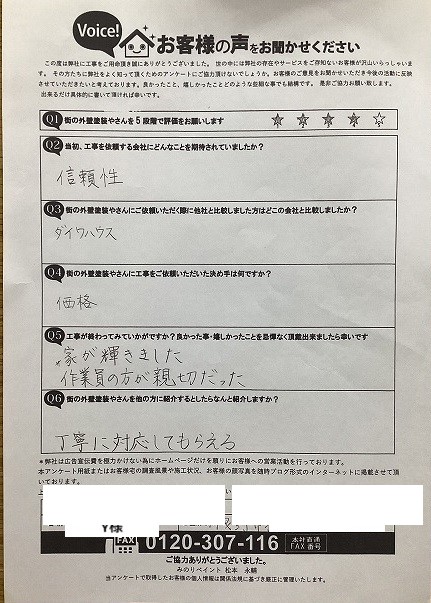 Voice!
お客様の声をお聞かせください
この度は弊社に工事をご用命頂き誠にありがとうございました。世の中には弊社の存在やサービスをご存知ないお客様が沢山いらっしゃいま
す。その方たちに弊社をよく知って頂くためのアンケートにご協力頂けないでしょうか。お客様のご意見をお聞かせいただき今後の活動に反映
させていただきたいと考えております。良かったこと、嬉しかったことどのような些細な事でも結構です。是非ご協力お願い致します。
出来るだけ具体的に書いて頂ければ幸いです。
Q1 街の外壁塗装やさんを5段階で評価をお願いします ☆ ☆ ☆ ☆ ☆
Q2 当初、工事を依頼する会社にどんなことを期待されていましたか?
信頼性
Q3 街の外壁塗装やさんにご依頼いただく際に他社と比較しました方はどこの会社と比較しましたか?
ダイワハウス
Q4 街の外壁塗装やさんに工事をご依頼いただいた決め手は何ですか?
価格
Q5 工事が終わってみていかがですか?良かった事・嬉しかったことを忌憚なく頂戴出来ましたら幸いです
家が輝きました
作業員の方が親切だった
Q6 街の外壁塗装やさんを他の方に紹介するとしたらなんと紹介しますか?
丁寧に対応してもらえる
*弊社は広告宣伝費を極力かけない為にホームページだけを頼りにお客様への営業活動を行っております。
本アンケート用紙またはお客様宅の調査風景や施工状況、お客様の顔写真を随時ブログ形式のインターネットに掲載させて頂
いております。
Y様
FAX 0120-307-116 本社直通 FAX番号
ご協力ありがとうございました。
みのりペイント 松本 永輔
当アンケートで取得したお客様の個人情報は関係法規に基づき厳正に管理いたします。